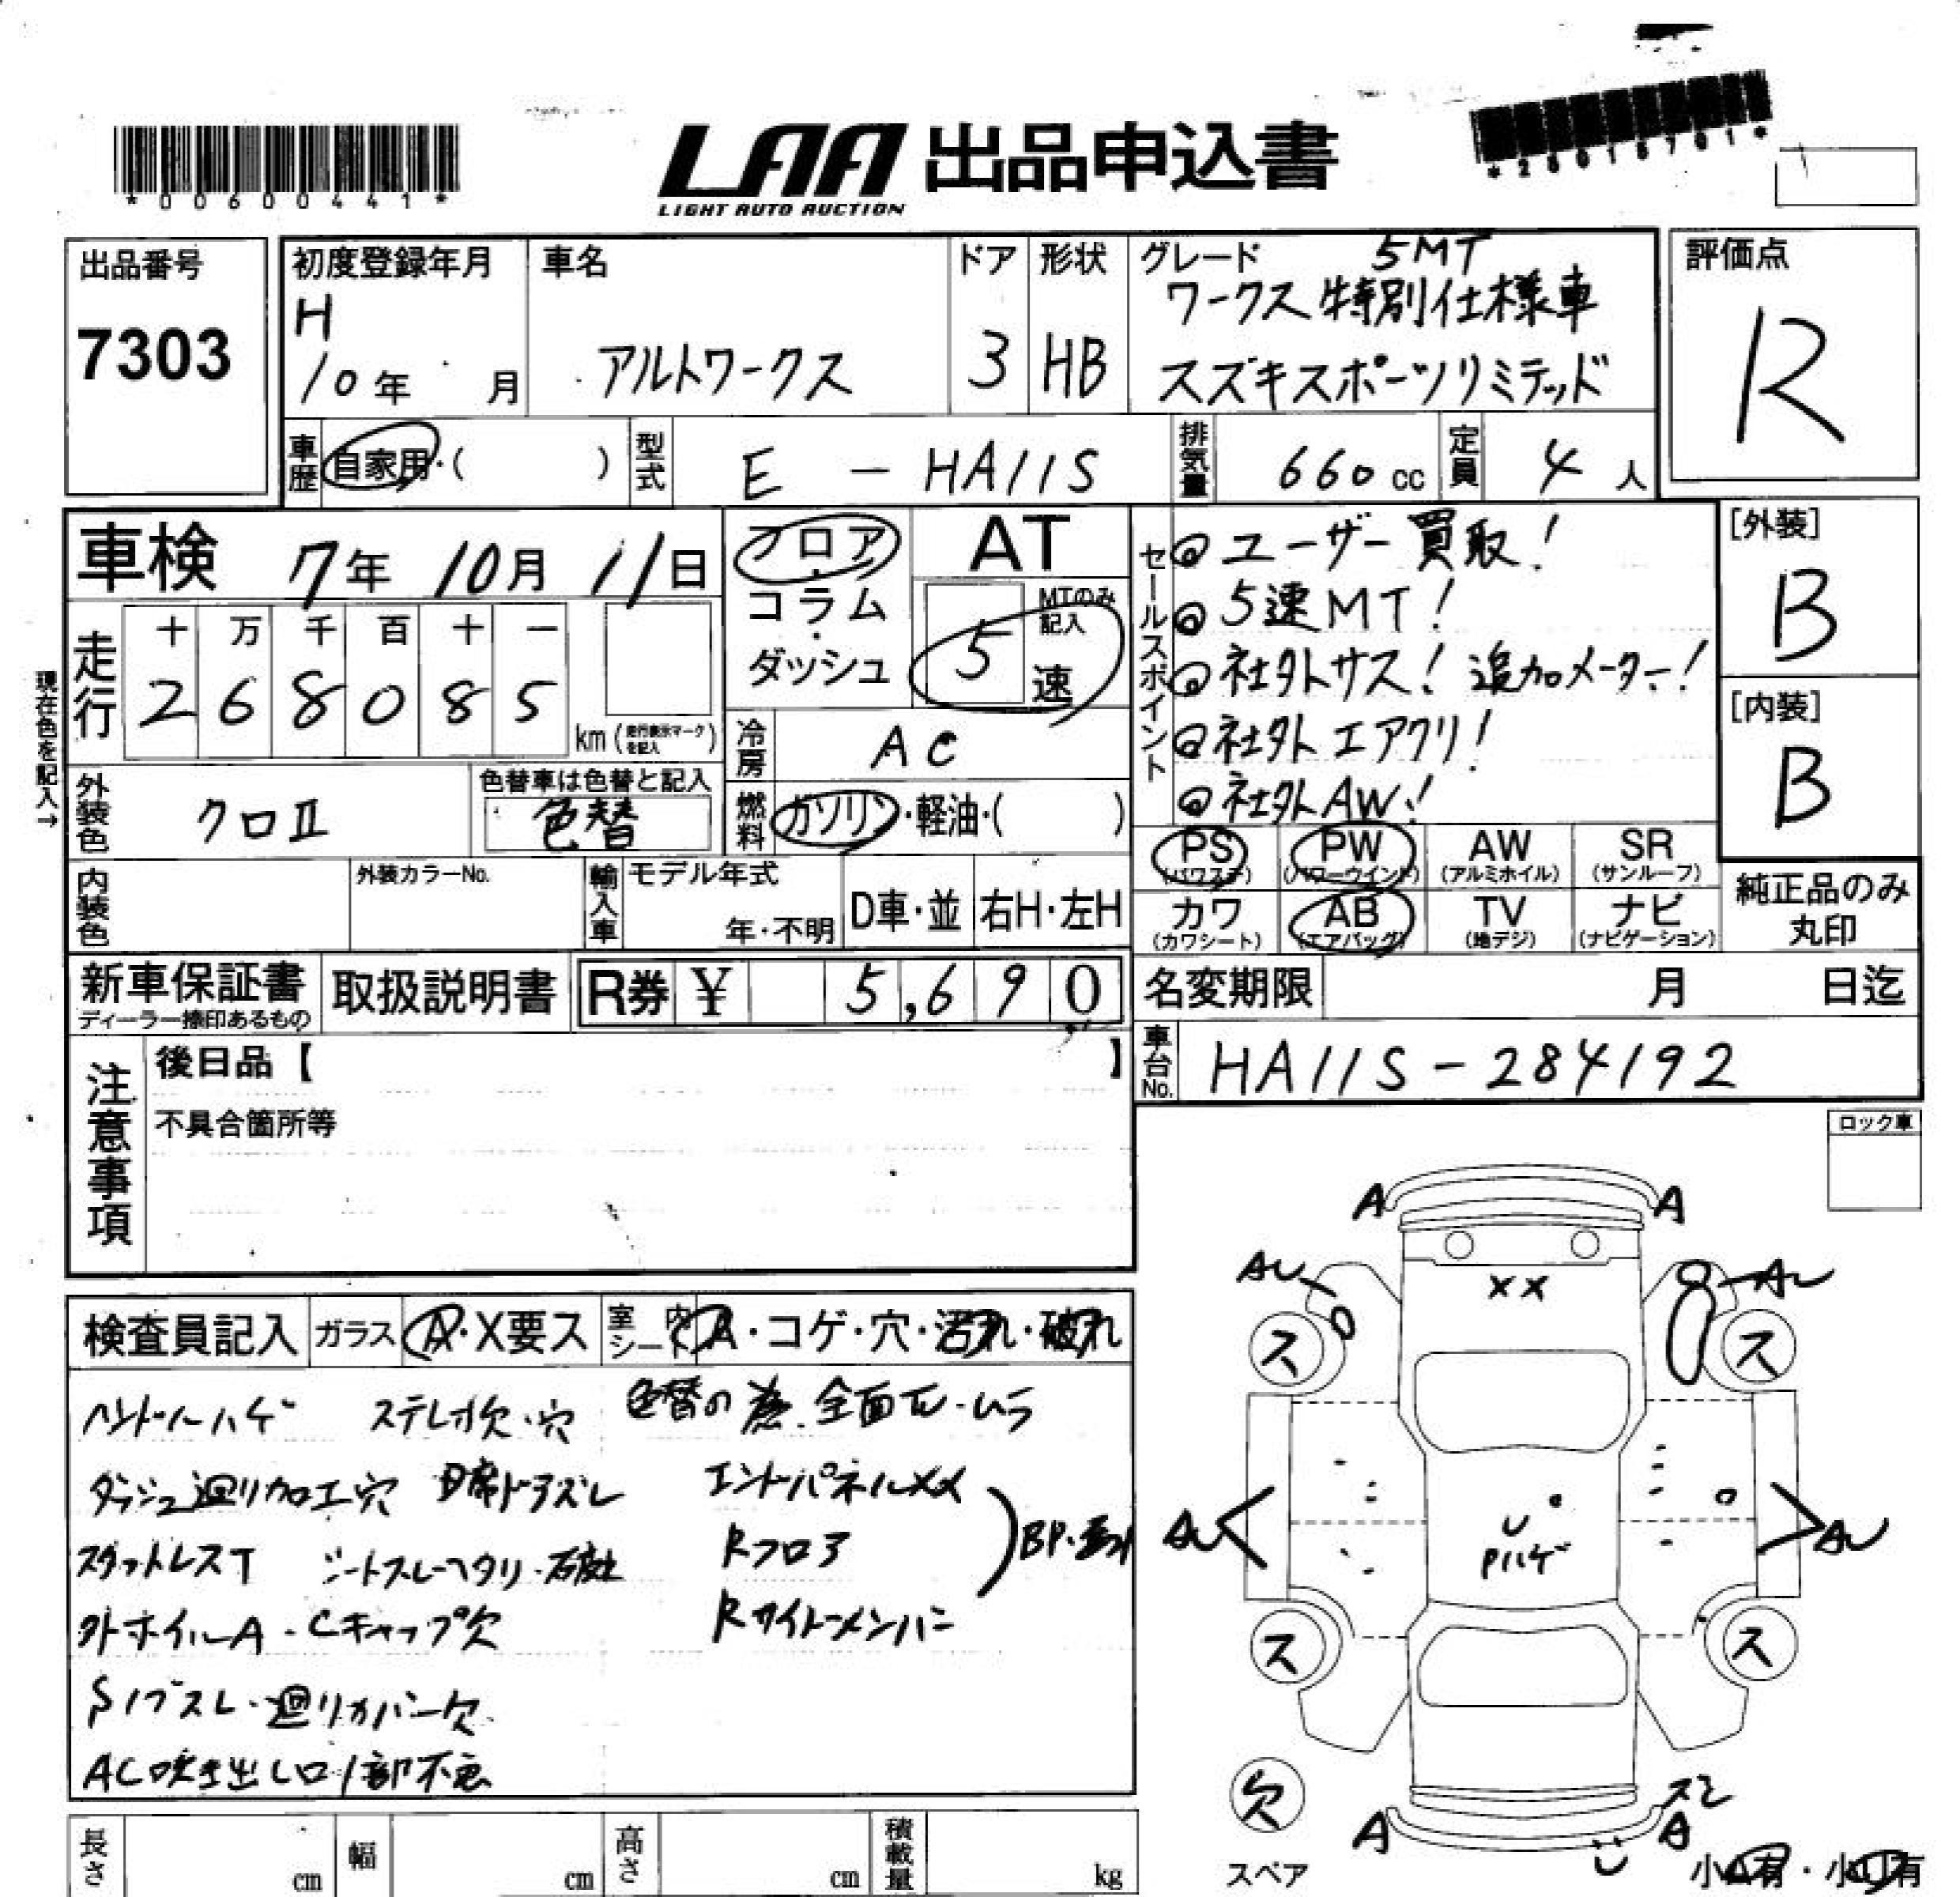 *00600441*
LAA 出品申込書
LIGHT AUTO AUCTION
出品番号
7303
初度登録年月
H
10年 月
車名
アルトワークス
ドア
3
形状
HB
グレード 5MT
ワークス特別仕様車
スズキスポーツリミテッド
評価点
R
車歴 自家用・( )
型式 E - HA11S
排気量 660 cc
定員 4 人
車検 7年 10月 11日
走行
十 万 千 百 十 一
2 6 8 0 8 5 km (走行表示マークを記入)
現在色を記入→
外装色 クロⅡ
色替車は色替と記入
色替
内装色
外装カラーNo.
フロア・コラム・ダッシュ
AT
MTのみ記入
5 速
冷房 AC
燃料 ガソリン・軽油・( )
輸入車
モデル年式
年・不明
D車・並
右H・左H
セールスポイント
◎ユーザー買取!
◎5速MT!
◎社外サス! 追加メーター!
◎社外エアクリ!
◎社外AW!
[外装]
B
[内装]
B
PS (パワステ)
PW (パワーウインド)
AW (アルミホイル)
SR (サンルーフ)
カワ (カワシート)
AB (エアバッグ)
TV (地デジ)
ナビ (ナビゲーション)
純正品のみ丸印
新車保証書
ディーラー捺印あるもの
取扱説明書
R券 ¥ 5,690
名変期限 月 日迄
車台No. HA11S-284192
注意事項
後日品【 】
不具合箇所等
ロック車
検査員記入
ガラス A・X要ス
室内シート A・コゲ・穴・汚れ・破れ
ハンドルハゲ ステレオ欠・穴 色替の為 全面 ・ムラ
ダッシュ廻り加工穴 エンドパネルXX
スタットレスT シートスレ・ヘタリ・破れ Rフロア
外ホイルA・Cキャップ欠 Rサイドメンバー
Sノブスレ・廻りカバー欠
AC吹き出し口1部不良
A A
AU AU
XX
ス ス
AU AU
U
Pハゲ
ス ス
欠
スペア
A A
小A有・小U有
長さ cm
幅 cm
高さ cm
積載量 kg